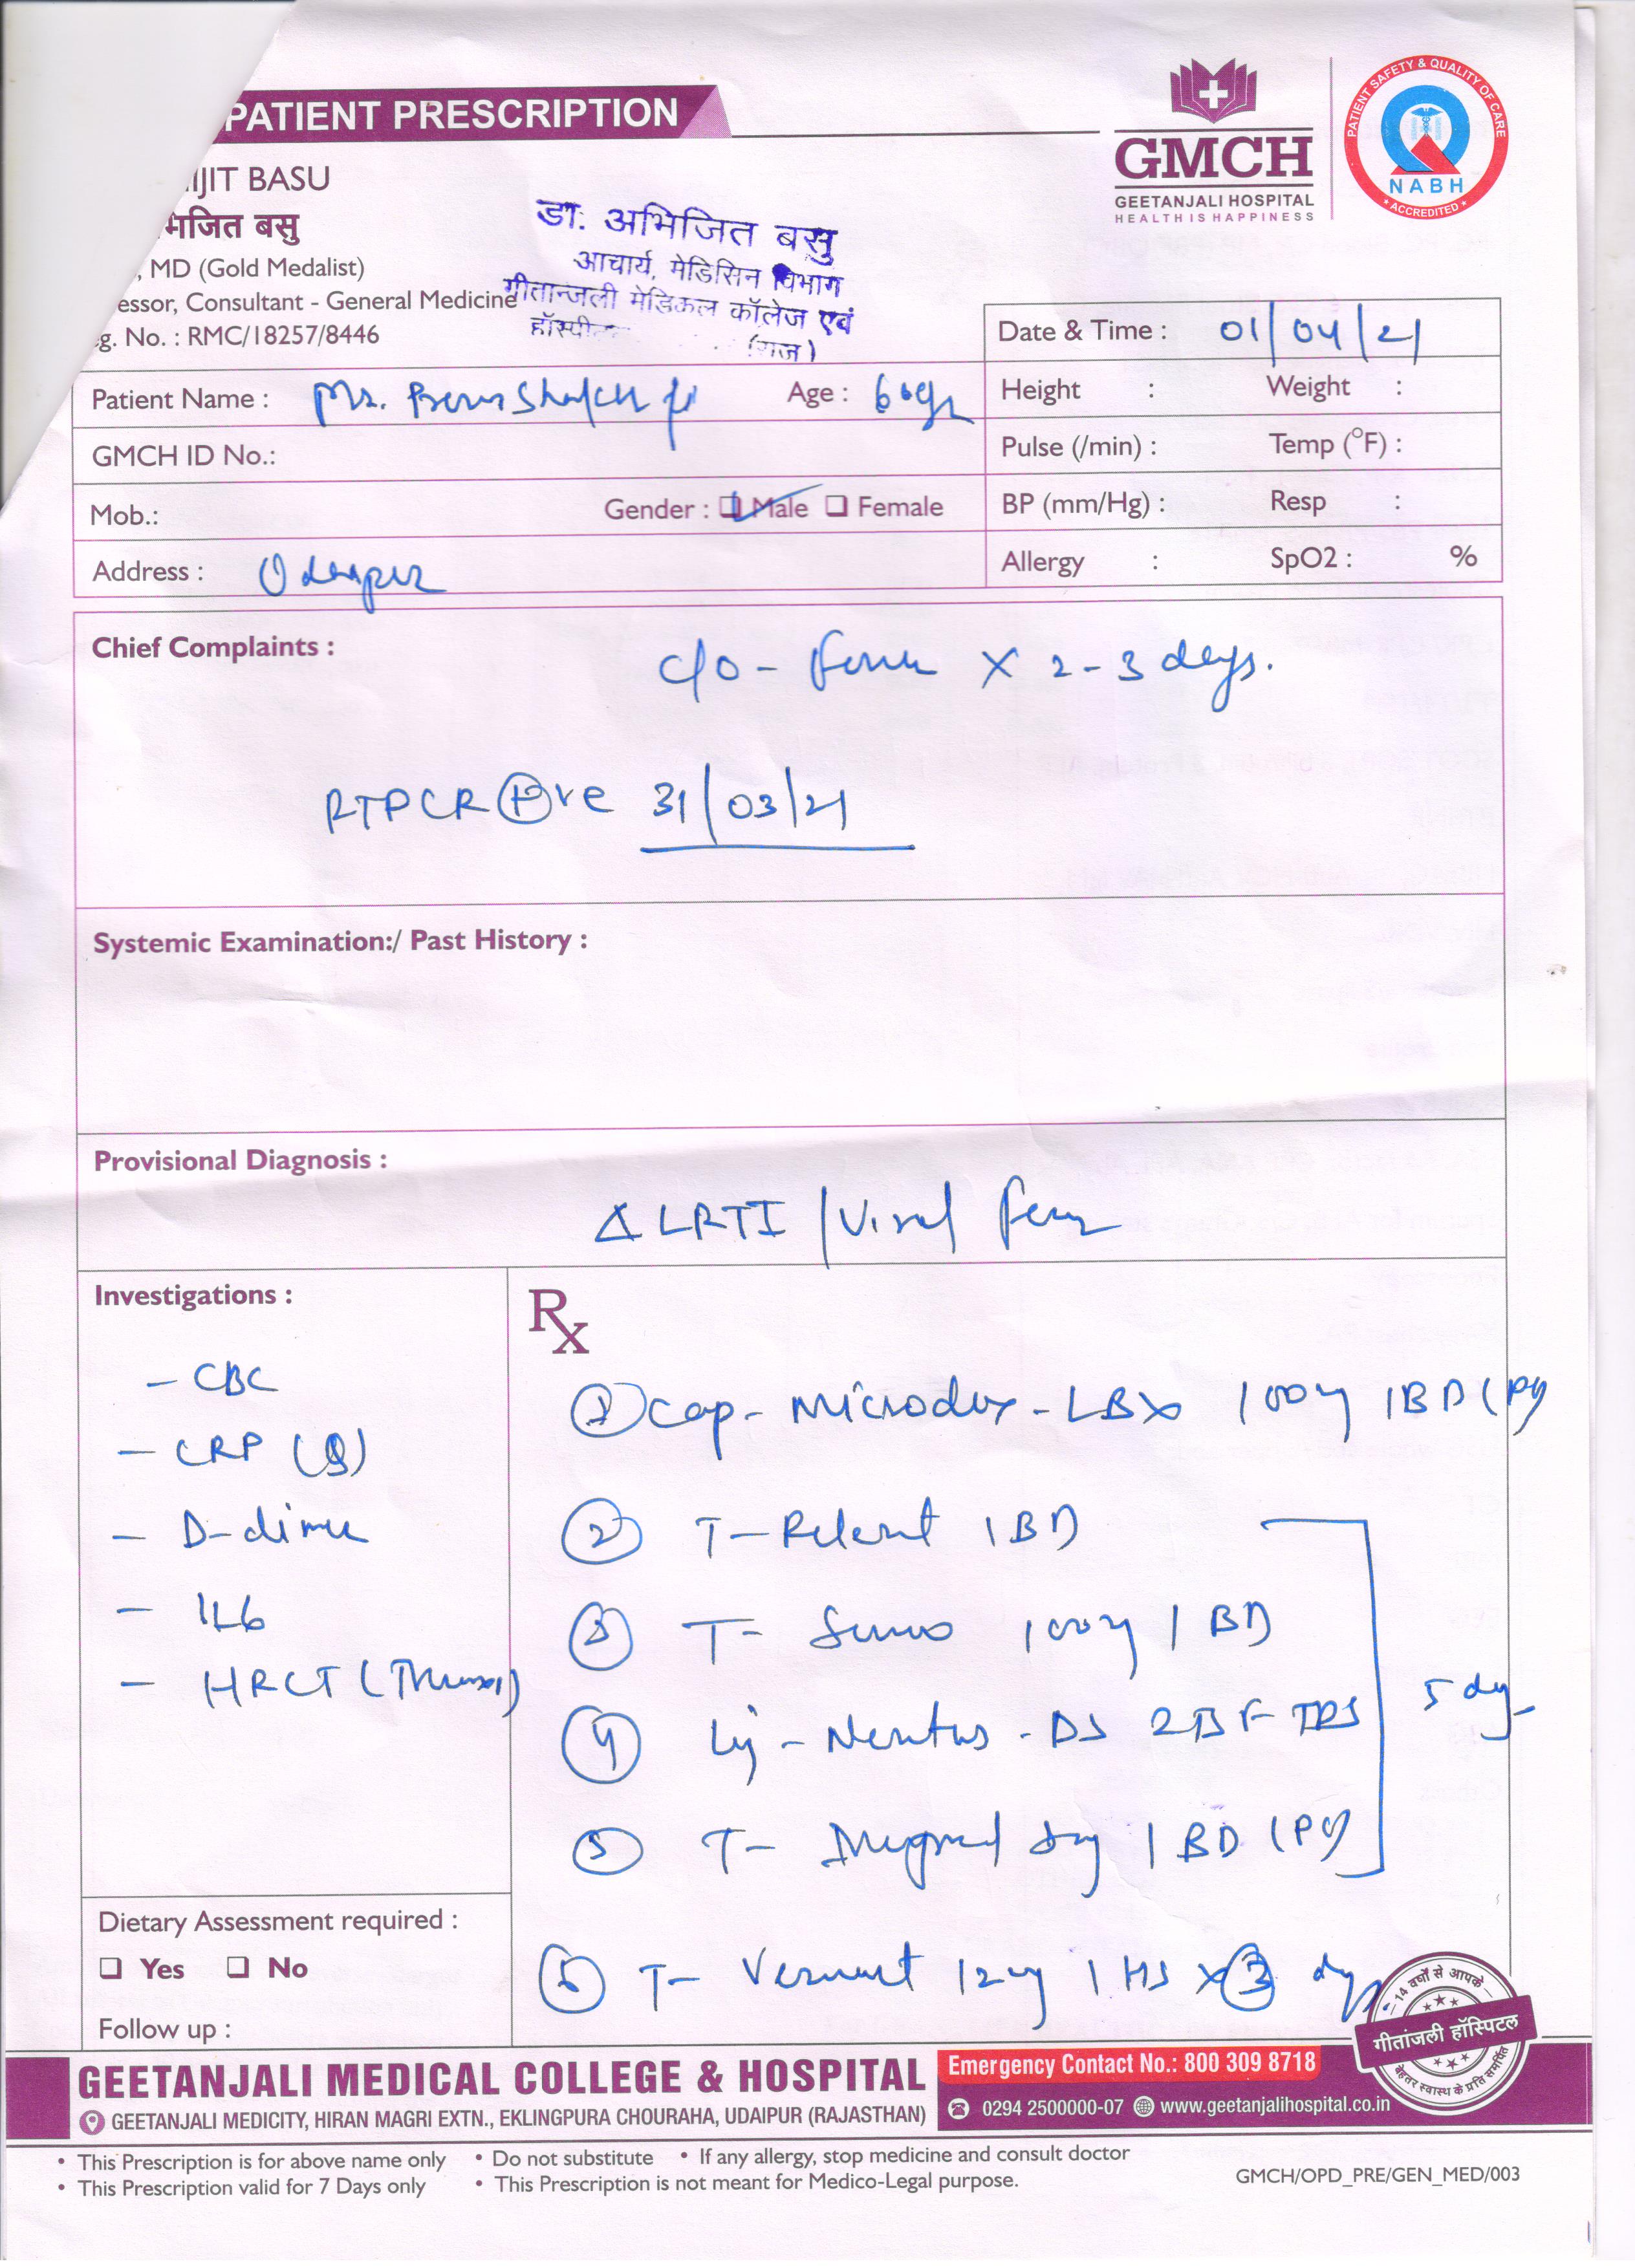 PATIENT PRESCRIPTION
GMCH
GEETANJALI HOSPITAL
HEALTH IS HAPPINESS
PATIENT SAFETY & QUALITY OF CARE
NABH
ACCREDITED
IJIT BASU
भिजित बसु
, MD (Gold Medalist)
essor, Consultant - General Medicine
g. No. : RMC/18257/8446
डा. अभिजित बसु
आचार्य, मेडिसिन विभाग
गीतान्जली मेडिकल कॉलेज एवं
(राज)
Date & Time : 01/04/21
Patient Name : Mr. Age : 60yr
Height : Weight :
GMCH ID No.:
Pulse (/min) : Temp (°F) :
Mob.: Gender : Male Female
BP (mm/Hg) : Resp :
Address : Udaipur
Allergy : SpO2 : %
Chief Complaints :
c/o - fever x 2-3 days.
RTPCR +ve 31/03/21
Systemic Examination:/ Past History :
Provisional Diagnosis :
Δ LRTI / Viral fever
Investigations :
- CBC
- CRP (Q)
- D-dimer
- IL6
- HRCT (Thorax)
Rx
1 Cap- Microdox-LBX 100mg 1 BD
2 T- Relent 1 BD
3 T- Sumo 100mg 1 BD
4 DS TDS
5 days
5 T- 1 BD
6 T- 12mg 1 HS x 3 days.
Dietary Assessment required :
Yes No
Follow up :
14 वर्षों से आपके
गीतांजली हॉस्पिटल
बेहतर स्वास्थ के प्रति समर्पित
GEETANJALI MEDICAL COLLEGE & HOSPITAL
GEETANJALI MEDICITY, HIRAN MAGRI EXTN., EKLINGPURA CHOURAHA, UDAIPUR (RAJASTHAN)
Emergency Contact No.: 800 309 8718
0294 2500000-07 www.geetanjalihospital.co.in
• This Prescription is for above name only • Do not substitute • If any allergy, stop medicine and consult doctor
• This Prescription valid for 7 Days only • This Prescription is not meant for Medico-Legal purpose.
GMCH/OPD_PRE/GEN_MED/003